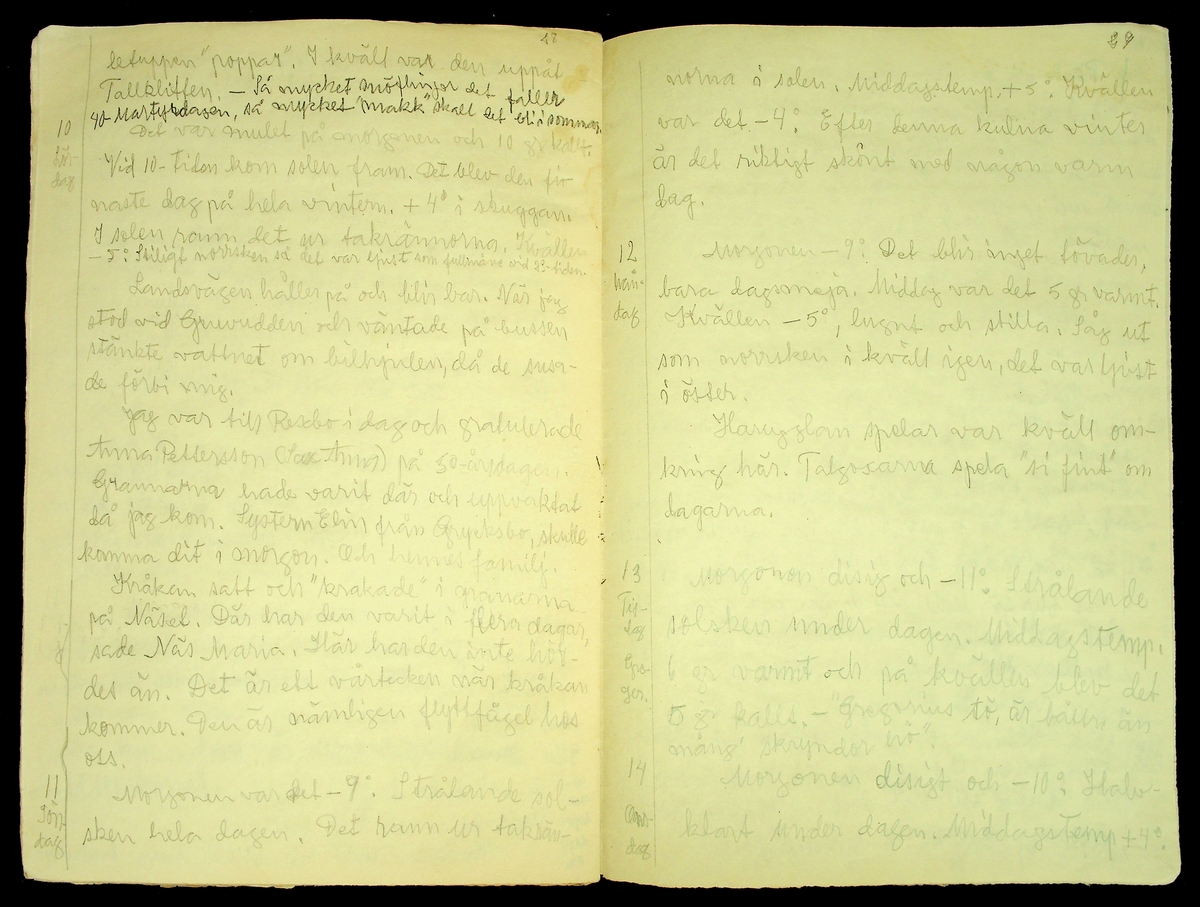 28
letuppen "poppar". I kväll var den uppåt
Tallkliffen. – Så mycket snöflingor det faller
40-Martyrdagen, så mycket "makk" skall det bli i sommar.
10 Lör-dag
Det var mulet på morgonen och 10 gr. kallt.
Vid 10-tiden kom solen fram. Det blev den fi-
naste dag på hela vintern. +4° i skuggan.
I solen rann det ur takrännorna. Kvällen
–5°. Stiligt norrsken så det var ljust som fullmåne vid 23-tiden.
Landsvägen håller på och blir bar. När jag
stod vid Gruvudden och väntade på bussen
stänkte vattnet om bilhjulen, då de susa-
de förbi mig.
Jag var till Rexbo i dag och gratulerade
Anna Pettersson (Sax Anna) på 50-årsdagen.
Grannarna hade varit där och uppvaktat
då jag kom. Systern Elin från Grycksbo, skulle
komma dit i morgon. Och hennes familj.
Kråkan satt och "krakade" i granarna
på Näset. Där har den varit i flera dagar,
sade Näs Maria. Här har den inte hör-
des än. Det är ett vårtecken när kråkan
kommer. Den är nämligen flyttfågel hos
oss.
11 Sön-dag
Morgonen var det –9°. Strålande sol-
sken hela dagen. Det rann ur takrän-
29
norna i solen. Middagstemp. +5°. Kvällen
var det –4°. Efter denna kulna vinter
är det riktigt skönt med någon varm
dag.
12 Mån-dag
Morgonen –9°. Det blir inget töväder,
bara dagsmeja. Middag var det 5 gr varmt.
Kvällen –5°, lugnt och stilla. Såg ut
som norrsken i kväll igen, det var ljust
i öster.
Harugglan spelar var kväll om-
kring här. Talgoxarna spela "si fint" om
dagarna.
13 Tis-dag Gre-gor.
Morgonen disig och –11°. Strålande
solsken under dagen. Middagstemp.
6 gr varmt och på kvällen blev det
5 gr kallt. – "Gregorius tö, är bättr' än
mång' skryndor hö".
14 Ons-dag
Morgonen disigt och –10°. Halv-
klart under dagen. Middagstemp +4°.